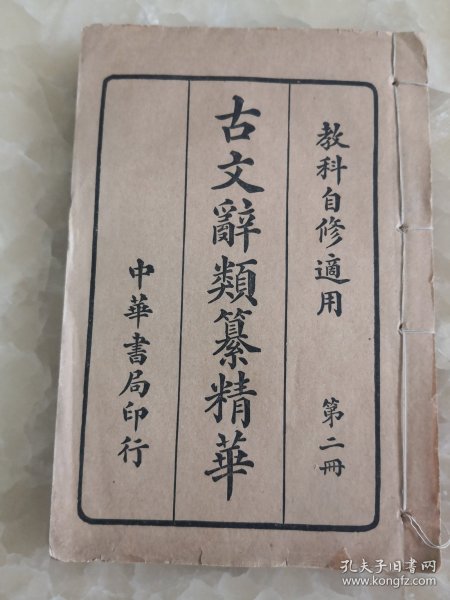 教科自修適用
第二冊
古文辭類纂精華
中華書局印行
孔夫子旧书网
www.kongfz.com